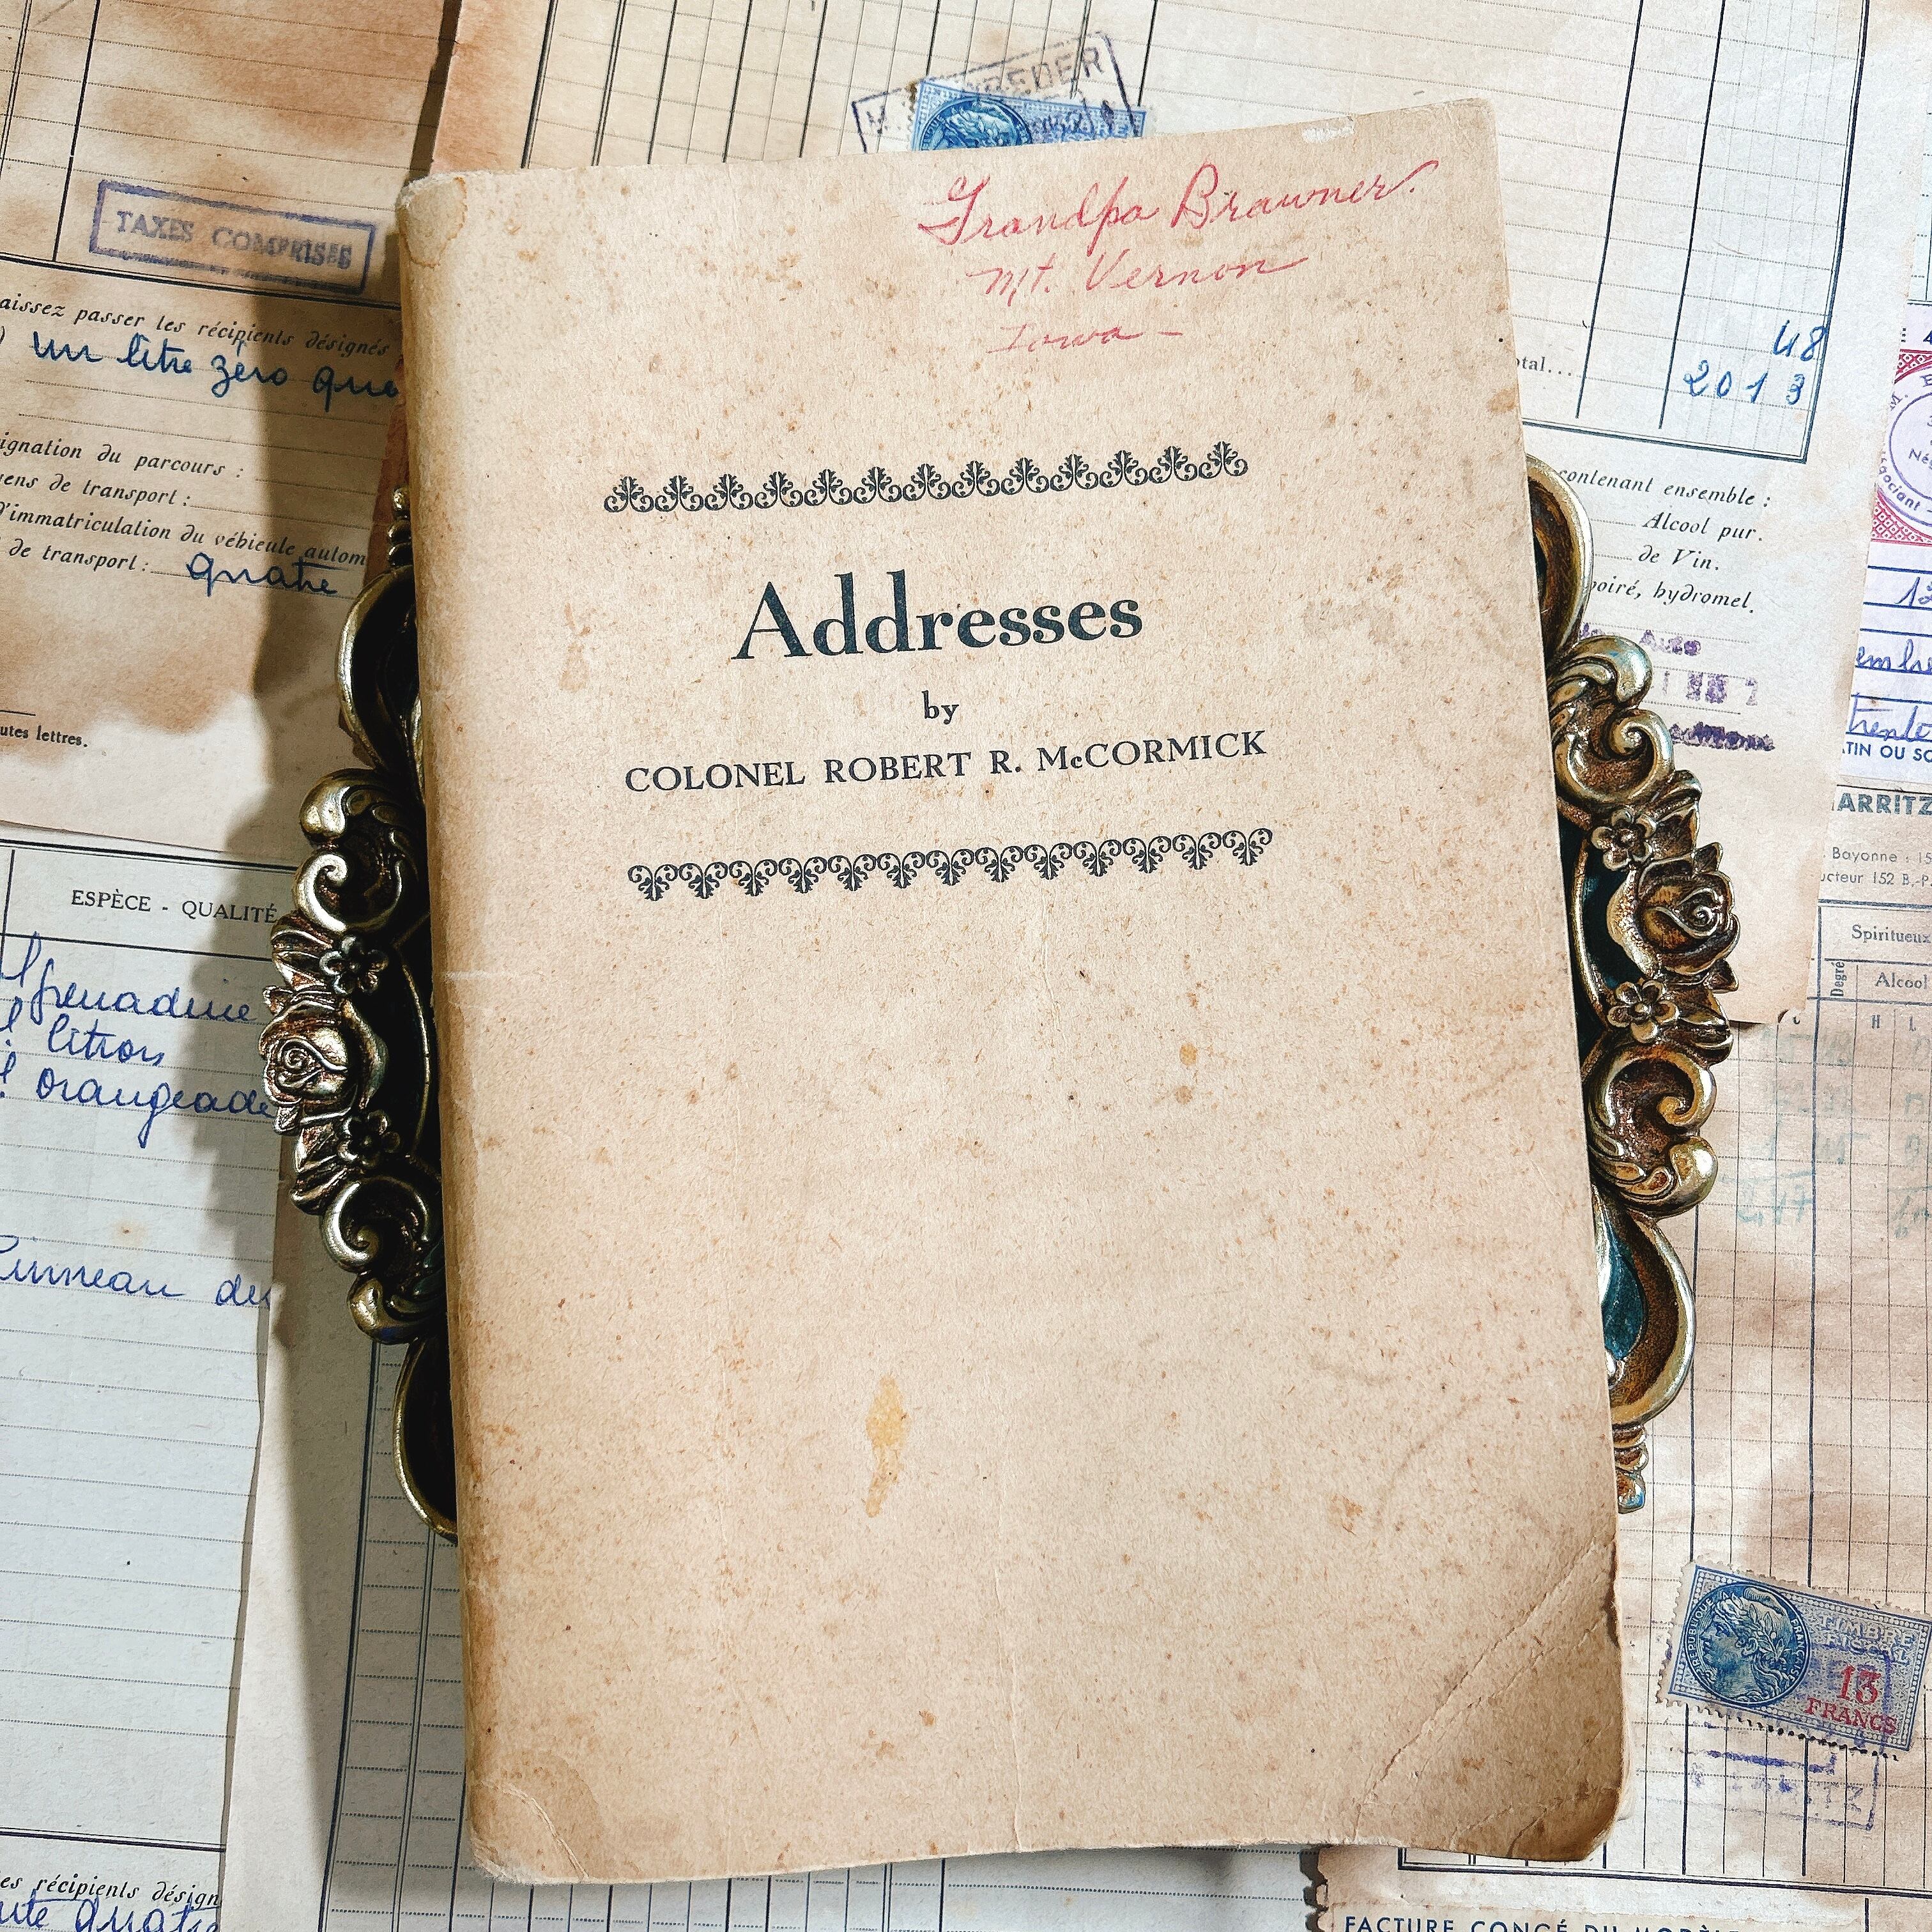 TAXES COMPRISES
Grandpa Brawner.
Mt. Vernon
Iowa -
aissez passer les récipients désignés
un litre zéro qua
ignation du parcours :
yens de transport :
d'immatriculation du véhicule autom
de transport : quatre
utes lettres.
otal...
48
2013
contenant ensemble :
Alcool pur.
de Vin.
poiré, hydromel.
Addresses
by
COLONEL ROBERT R. McCORMICK
embre
trente
TIN OU SO
IARRITZ
Bayonne : 15
ucteur 152 B.-P.
Spiritueux
Degré
Alcool
H L
ESPÈCE - QUALITÉ
grenadine
citron
orangeade
RÉPUBLIQUE FRANÇAISE
TIMBRE
FISCAL
13
FRANCS
es récipients désign
FACTURE CONGÉ DU MODÈL